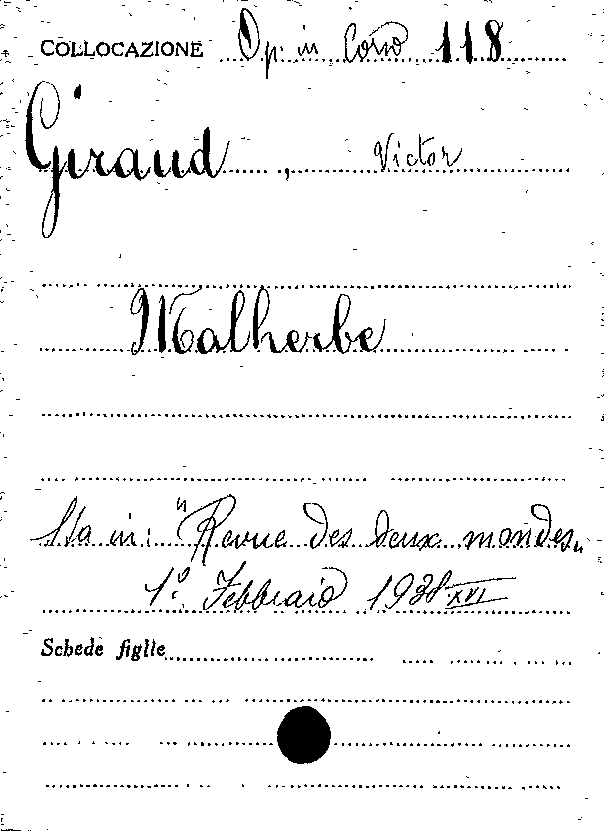 COLLOCAZIONE Op. in Corso 118
Giraud, Victor
Malherbe
Sta in: "Revue des deux mondes„
1º Febbraio 1938 XVI
Schede figlie